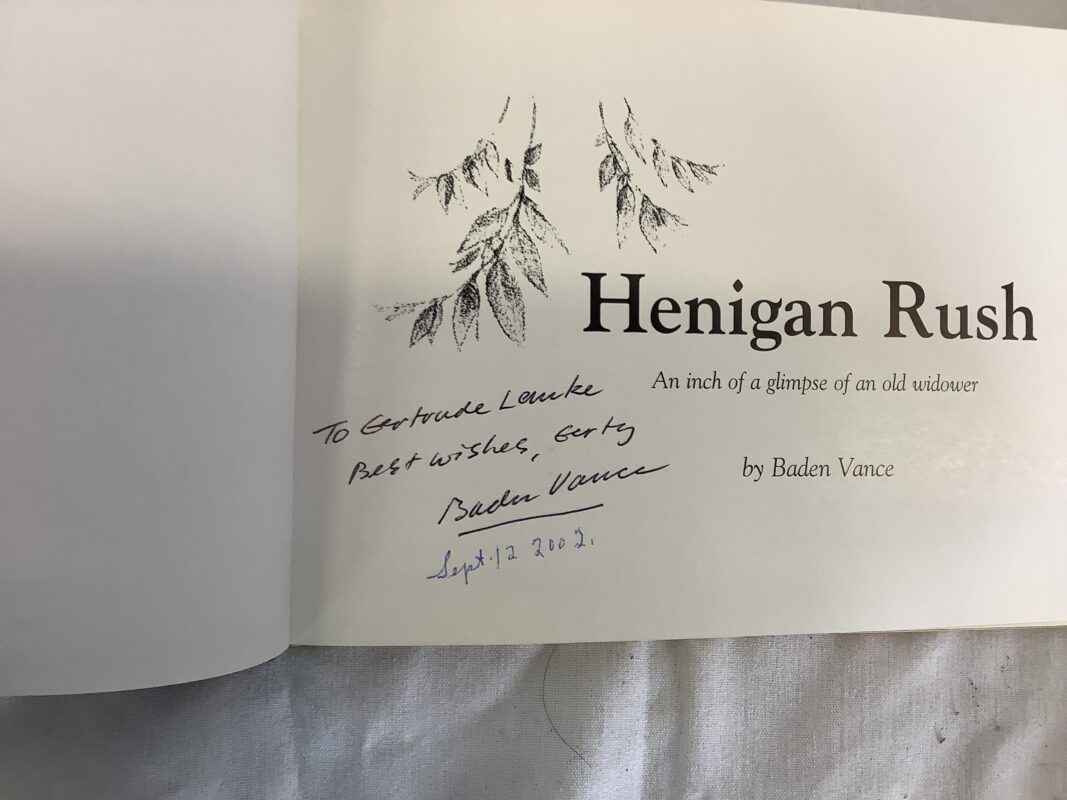 Henigan Rush
An inch of a glimpse of an old widower
by Baden Vance
To Gertrude Lemke
Best wishes, Gerty
Baden Vance
Sept. 12 2002.